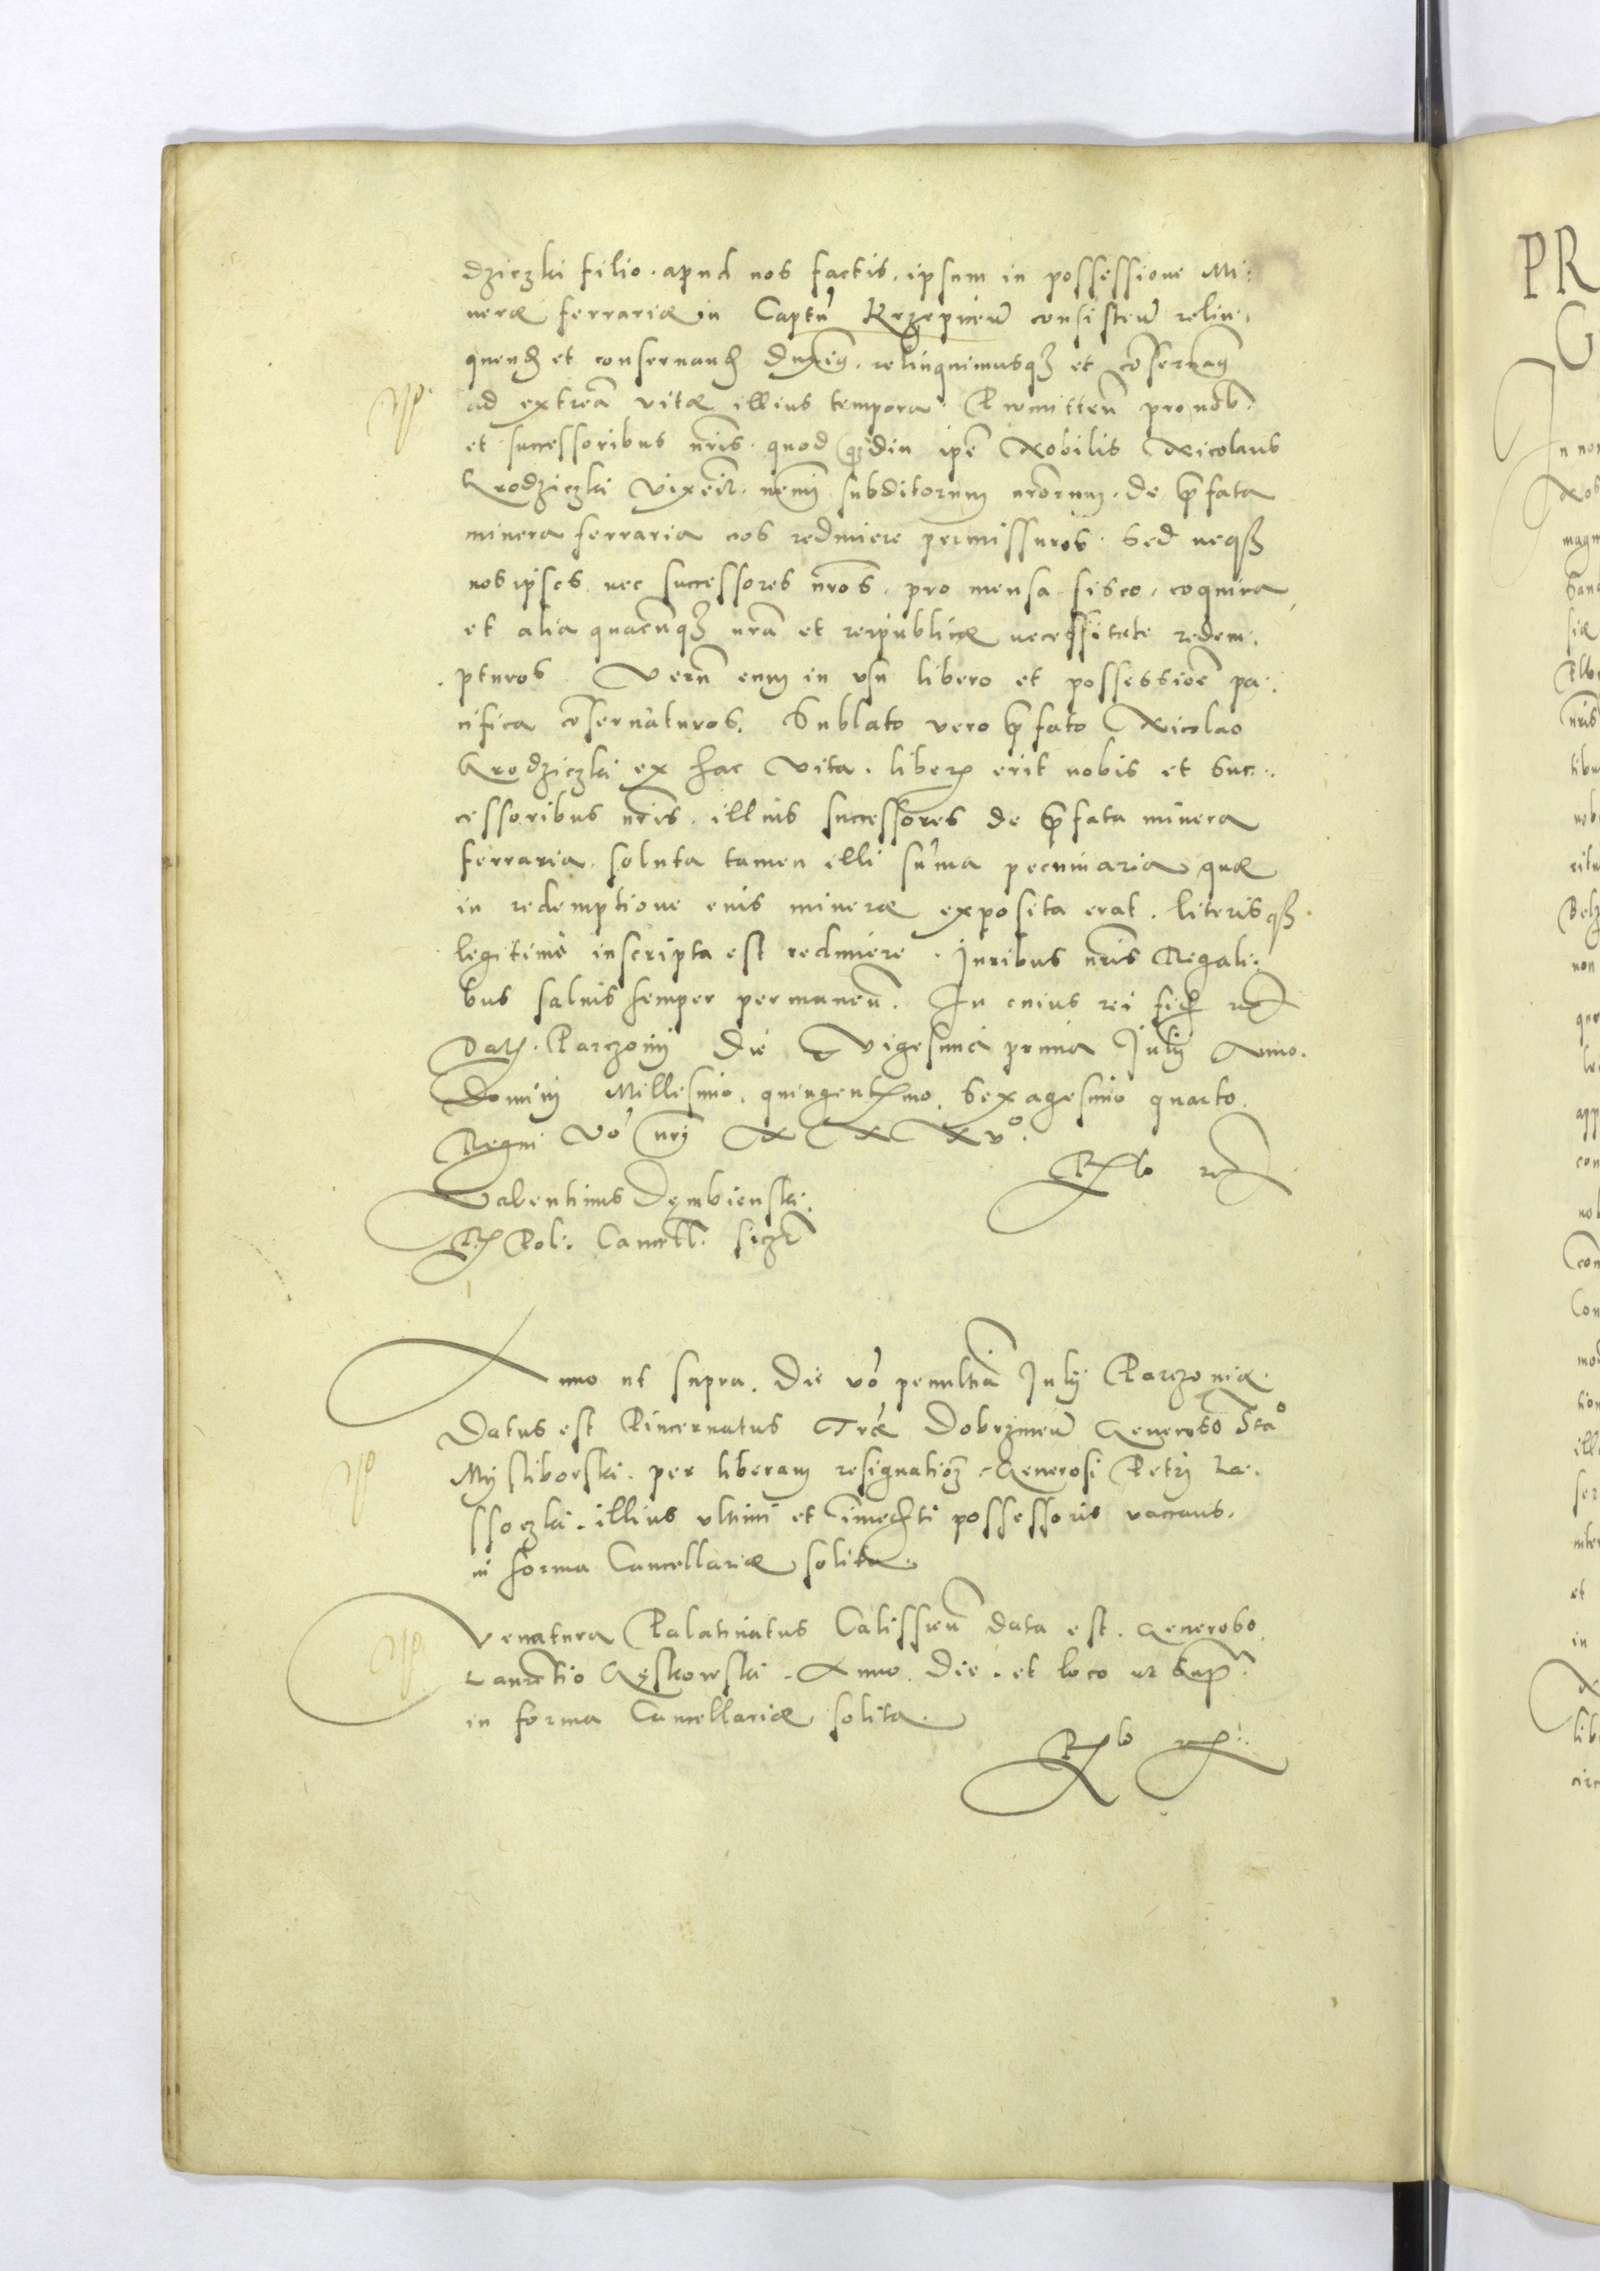 dziczki filio. apud nos factis. ipsum in possessione Mi:
neræ ferrariæ in Captũ Krzepiceñ consisteñ relin,
quend et conseruand duximus. relinquimusqȝ et coseruamus
ad extreã vitæ illius tempora. Promitteñ pro nob.
et successoribus nris. quod qdiu ipe Nobilis Nicolaus
Grodziczki vixerit. nemini subditorum nrorum. de pfata
minera ferraria eos redimere permissuros. Sed neqȝ
nos ipsos nec successores nros. pro mensa fisco, coquina
et alia quacunqȝ nra et reipublicæ necessitate redem.
pturos. Verũ eum in usu libero et possessioe pa:
cifica coseruaturos. Sublato vero pfato Nicolao
Grodziczki ex hac vita. liberum erit nobis et Suc:.
cessoribus nris. illius successores de pfata minera
ferraria. soluta tamen illi suma pecuniaria quæ
in redemptione eius mineræ exposita erat. literisqȝ.
legitimè inscripta est redimere. Juribus nris Regali:
bus saluis semper permaneñ. In cuius rei fid rei
Dat. Parczouij Die Vigesima prima Julij Anno.
Domini Millesimo, quingentmo. Sexagesimo quarto.
Regni vo nri XXXVº.
Rlo rei
Valentinus Dembienski.
R Pol. Cancell. sczt
Anno ut supra. Die vo penultia Julij Parczouiæ.
Datus est Pincernatus Træ Dobrzineñ Generoso Staº
Mysliborski. per liberam resignationẽ Generosi Petri La.
ssoczki. illius ultimi et imedti possessoris vacans.
in forma Cancellariæ solita.
Venatura Palatinatus Calissieñ data est. Generoso
Laurentio Gęskowski. Anno. Die. et loco ut Sup.
in forma Cancellariæ solita.
Rlo
PR
G